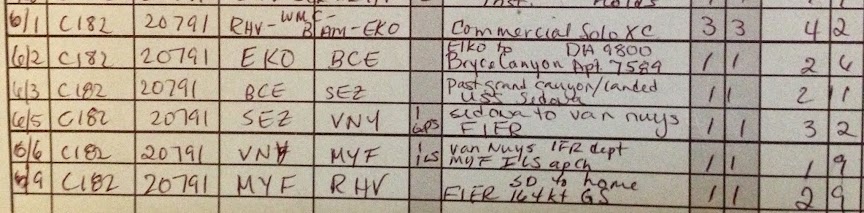 6/1 C182 20791 RHV-WMC-BAM-EKO Commercial Solo XC 3 3 4 2
6/2 C182 20791 EKO BCE Elko to DA 9800
Bryce Canyon Apt. 7589 1 1 2 6
6/3 C182 20791 BCE SEZ Past grand canyon/landed
USS Sidona 1 1 2 1
6/5 C182 20791 SEZ VNY 1 GPS sidona to van nuys
FIFR 1 1 3 2
6/6 C182 20791 VNY MYF 1 ILS Van Nuys IFR dept
MYF ILS apch 1 1 1 9
6/9 C182 20791 MYF RHV SD to home
FIFR 164kt GS 1 1 2 9